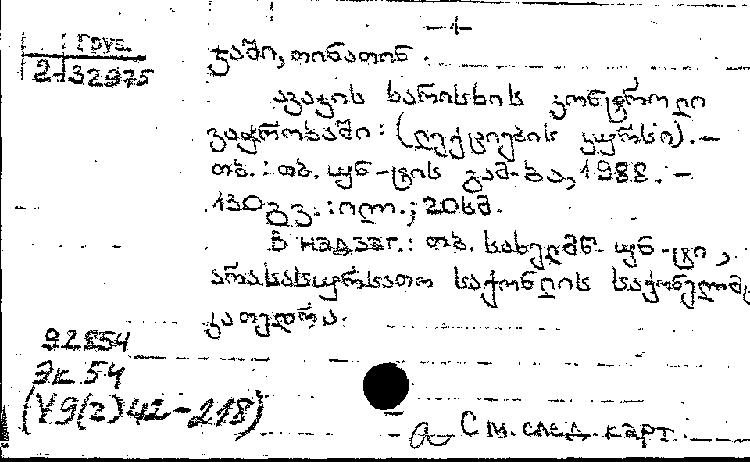 -1-
Груз.
2-32975
ჯაში, თინათინ.
ავეჯის ხარისხის კონტროლი
ვაჭრობაში: (ლექციების კურსი). –
თბ.: თბ. უნ-ტის გამ-ბა, 1988. –
130 გვ.: ილ.; 20 სმ.
В надзаг.: თბ. სახელმწ. უნ-ტი,
არასასურსათო საქონლის საქონელმც.
კათედრა.
92854
Эк 54
(У9(2)42-218)
См. след. карт.